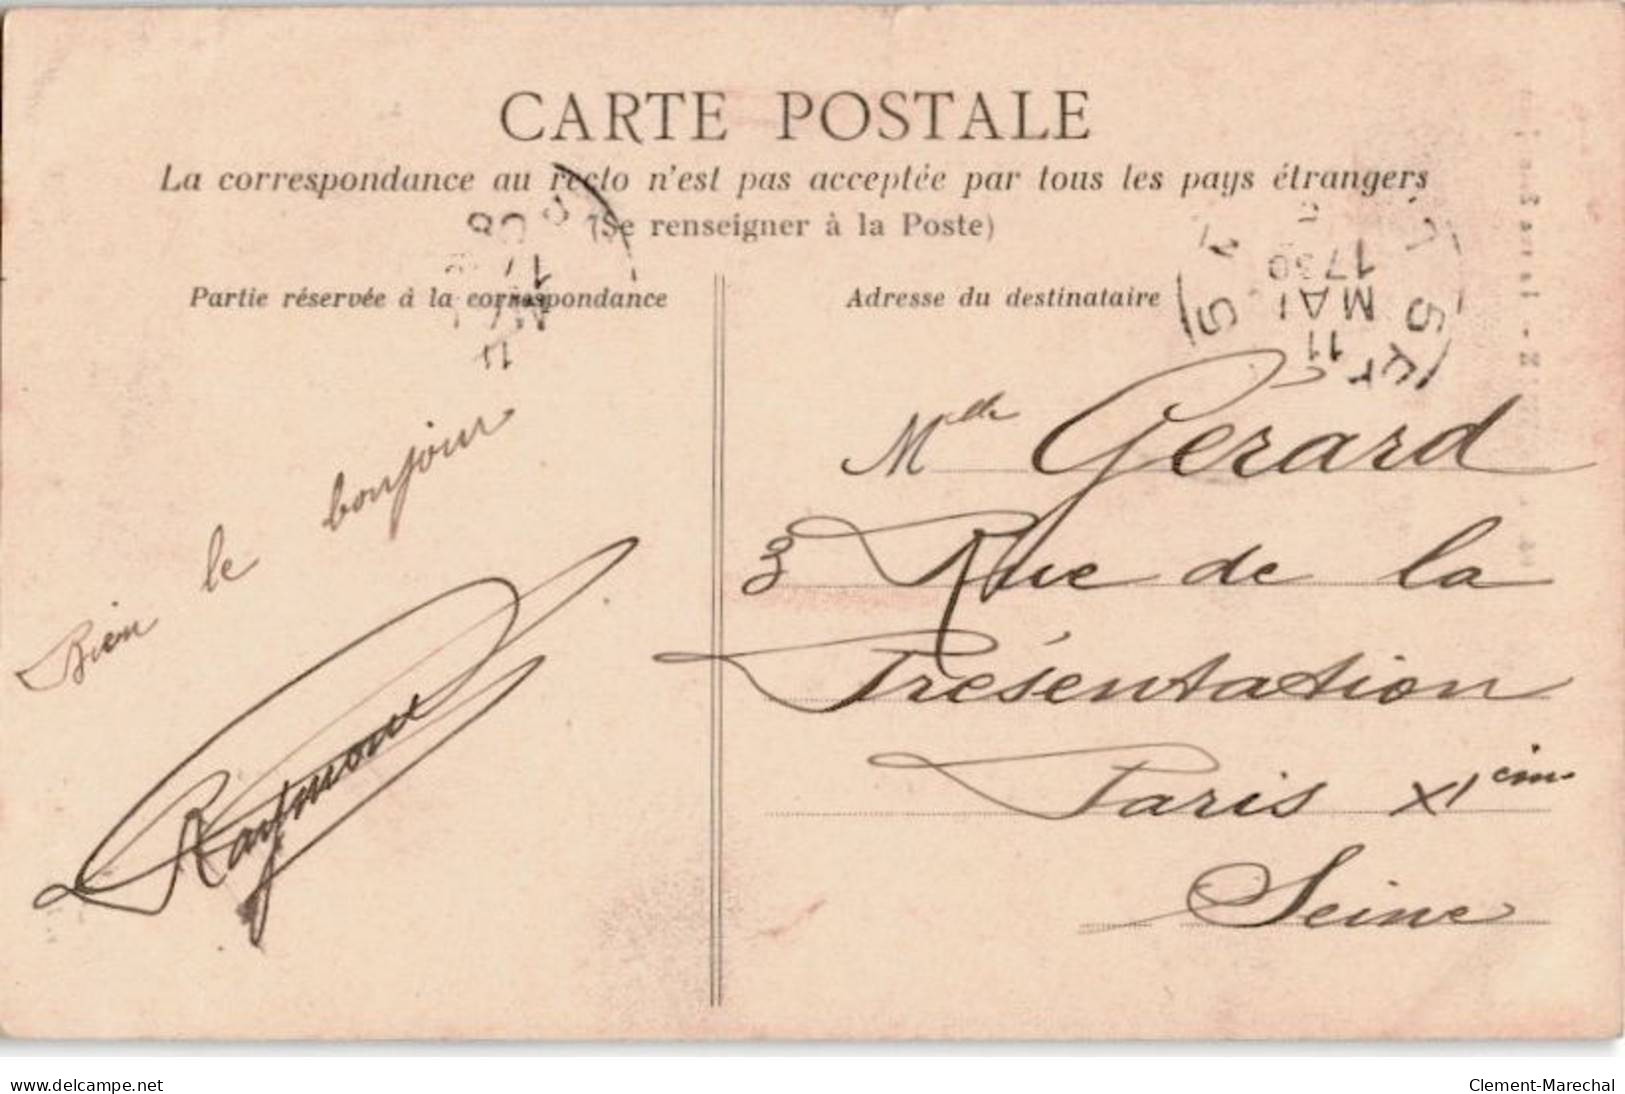 CARTE POSTALE
La correspondance au recto n'est pas acceptée par tous les pays étrangers
(Se renseigner à la Poste)
Partie réservée à la correspondance
Adresse du destinataire
11
MAI
1730
Bien le bonjour
Raymond
Mlle Gerard
3 Rue de la
Présentation
Paris XIeme
Seine
www.delcampe.net
Clement-Marechal